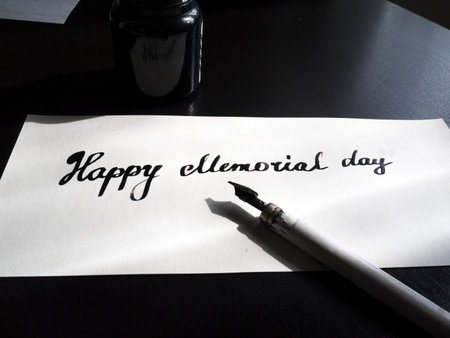 Happy Memorial day